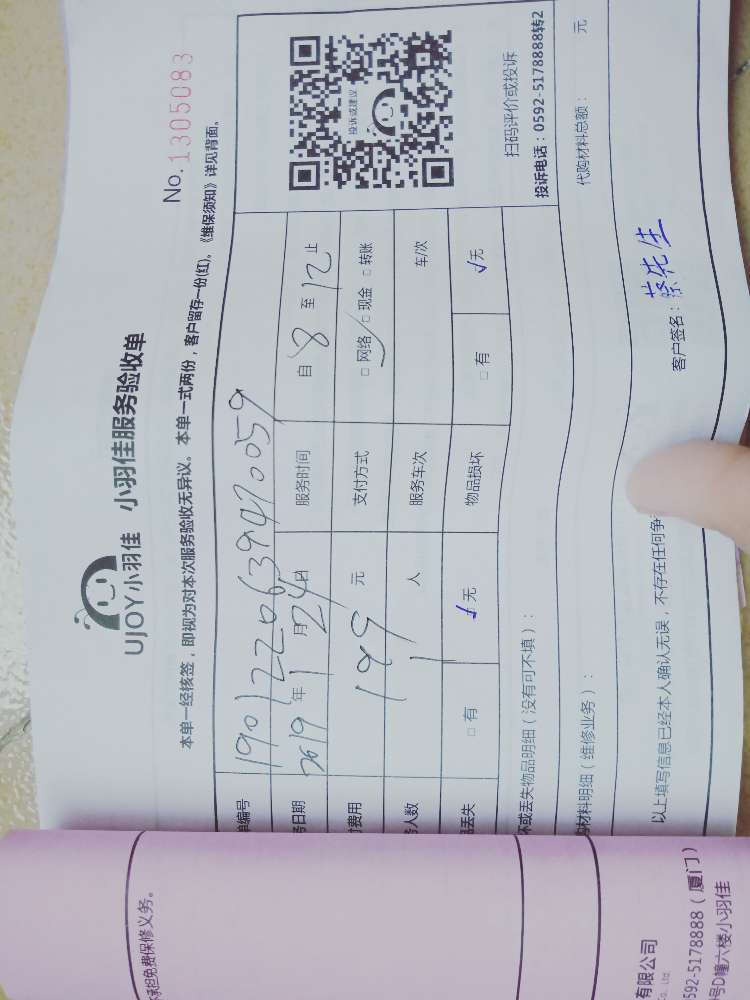 UJOY小羽佳 小羽佳服务验收单
No.1305083
本单一经核签，即视为对本次服务验收无异议。 本单一式两份，客户留存一份(红)。《维保须知》详见背面。
单编号 1901220639470059
务日期 2019 年 1 月 24 日 服务时间 自 8 至 12 止
付费用 149 元 支付方式 □ 网络 □ 现金 □ 转账
务人数 1 人 服务车次 车/次
品丢失 □ 有 √ 无 物品损坏 □ 有 √ 无
投诉或建议
扫码评价或投诉
投诉电话：0592-5178888转2
坏或丢失物品明细（没有可不填）：
购材料明细（维修业务）： 代购材料总额： 元
以上填写信息已经本人确认无误，不存在任何争 客户签名：蔡先生
承担免费保修义务。
有限公司
Co. Ltd.
592-5178888（厦门）
号D幢六楼小羽佳